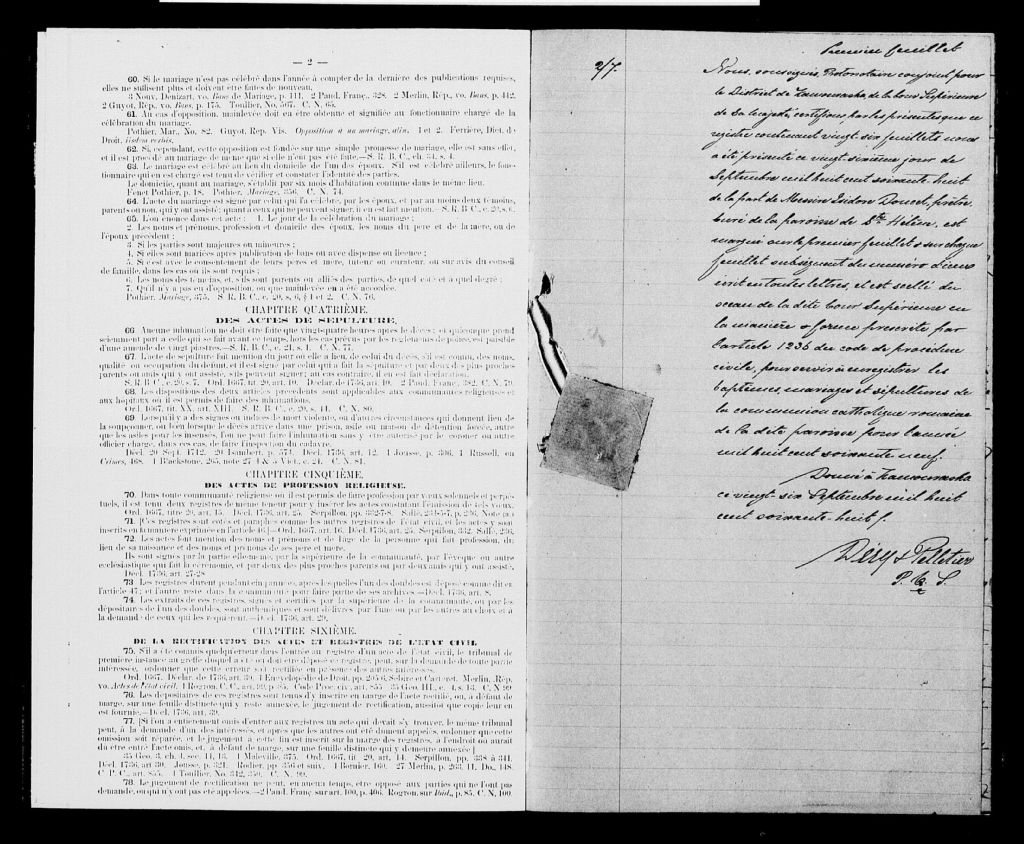 — 2 —
60. Si le mariage n'est pas célébré dans l'année à compter de la dernière des publications requises,
elles ne suffisent plus et doivent être faites de nouveau.
3 Nouv. Denizart, vo. Bans de Mariage, p. 111. 2 Pand. Franç., 328. 2 Merlin, Rép., vo. Bans, p. 412.
2 Guyot, Rép., vo. Bans, p. 175. Toullier, No. 567. C. N. 65.
61. Au cas d'opposition, mainlevée doit en être obtenue et signifiée au fonctionnaire chargé de la
célébration du mariage.
Pothier, Mar., No. 82. Guyot, Rep. Vis. Opposition à un mariage, alin. 1 et 2. Ferrière, Dict. de
Droit, iisdem verbis.
62. Si, cependant, cette opposition est fondée sur une simple promesse de mariage, elle est sans effet,
et il est procédé au mariage de même que si elle n'eût pas été faite.—S. R. B. C., ch. 34, s. 4.
63. Le mariage est célébré au lieu du domicile de l'un des époux. S'il est célébré ailleurs, le fonc-
tionnaire qui en est chargé est tenu de vérifier et constater l'identité des parties.
Le domicile, quant au mariage, s'établit par six mois d'habitation continue dans le même lieu.
Fenet Pothier, p. 18. Pothier, Mariage, 356, C. N. 74.
64. L'acte du mariage est signé par celui qui l'a célébré, par les époux, et par au moins deux témoins,
parents ou non, qui y ont assisté; quant à ceux qui ne peuvent signer, il en est fait mention.—S. R. B. C., c. 20, s. 6.
65. L'on énonce dans cet acte: 1. Le jour de la célébration du mariage;
2. Les noms et prénoms, profession et domicile des époux, les noms du père et de la mère, ou de
l'époux précédent;
3. Si les parties sont majeures ou mineures;
4. Si elles sont mariées après publication de bans ou avec dispense ou licence;
5. Si c'est avec le consentement de leurs pères et mère, tuteur ou curateur, ou sur avis du conseil
de famille, dans les cas où ils sont requis;
6. Les noms des témoins, et, s'ils sont parents ou alliés des parties, de quel côté et à quel degré;
7. Qu'il n'y a pas eu d'opposition, ou que mainlevée en a été accordée.
Pothier, Mariage, 375. S. R. B. C., c. 20, s. 6, § 1 et 2. C. N. 76.
CHAPITRE QUATRIÈME.
DES ACTES DE SÉPULTURE.
66. Aucune inhumation ne doit être faite que vingt-quatre heures après le décès; et quiconque prend
sciemment part à celle qui se fait avant ce temps, hors les cas prévus par les règlements de police, est passible
d'une amende de vingt piastres.—S. R. B. C., c. 21, s. 1. C. N. 77.
67. L'acte de sépulture fait mention du jour où elle a lieu, de celui du décès, s'il est connu, des noms,
qualité ou occupation du défunt, et il est signé par celui qui a fait la sépulture et par deux des plus proches
parents ou amis qui y ont assisté, s'ils peuvent signer; au cas contraire, il en est fait déclaration.
S. R. B. C., c. 20, s. 7. Ord. 1667, tit. 20, art. 10. Déclar. de 1736, art. 10. 2 Pand. Franç., 382. C. N. 79.
68. Les dispositions des deux articles précédents sont applicables aux communautés religieuses et
aux hôpitaux où il est permis de faire des inhumations.
Ord. 1667, tit. XX, art. XIII. S. R. B. C., c. 20, s. 11. C. N. 80.
69. Lorsqu'il y a des signes ou indices de mort violente, ou d'autres circonstances qui donnent lieu de
la soupçonner, ou bien lorsque le décès arrive dans une prison, asile ou maison de détention forcée, autre
que les asiles pour les insensés, l'on ne peut faire l'inhumation sans y être autorisé par le coroner ou autre
officier chargé, dans ces cas, de faire l'inspection du cadavre.
Décl. 20 Sept. 1712. 20 Isambert, p. 574. Décl. 1736, art. 12. 1 Jousse, p. 306, 1 Russell, on
Crimes, 468. 1 Blackstone, 265, note 27. 4 & 5 Vict., c. 24. C. N. 81.
CHAPITRE CINQUIÈME.
DES ACTES DE PROFESSION RELIGIEUSE.
70. Dans toute communauté religieuse où il est permis de faire profession par vœux solennels et perpé-
tuels, il est tenu deux registres de même teneur pour y insérer les actes constatant l'émission de tels vœux.
Ord. 1667, titre 20, art. 15. Décl. 1736, art. 25. Serpillon, pp. 332-7-8. Sallé,
71. [Ces registres sont cotés et paraphés comme les autres registres de l'état civil, et les actes y sont
inscrits en la manière exprimée en l'article 46.]—Ord. 1667, art. 16. Décl. 1736, art. 25. Serpillon, 332. Sallé, 236.
72. Les actes font mention des noms et prénoms et de l'âge de la personne qui fait profession, du
lieu de sa naissance et des noms et prénoms de ses père et mère.
Ils sont signés par la partie elle-même, par la supérieure de la communauté, par l'évêque ou autre
ecclésiastique qui fait la cérémonie, et par deux des plus proches parents ou par deux amis qui y ont assisté.
Décl. 1736, art. 27-28.
73. Les registres durent pendant cinq années, après lesquelles l'un des doubles est déposé comme dit en
l'article 47; et l'autre reste dans la communauté pour faire partie de ses archives.—Décl. 1736, art. 8.
74. Les extraits de ces registres, signés et certifiés par la supérieure de la communauté, ou par les
dépositaires de l'un des doubles, sont authentiques et sont délivrés par l'une ou par les autres au choix et à
la demande de ceux qui les requièrent.—Décl. 1736, art. 29.
CHAPITRE SIXIÈME.
DE LA RECTIFICATION DES ACTES ET REGISTRES DE L'ÉTAT CIVIL.
75. S'il a été commis quelqu'erreur dans l'entrée au registre d'un acte de l'état civil, le tribunal de
première instance au greffe duquel a été ou doit être déposé ce registre, peut, sur la demande de toute partie
intéressée, ordonner que cette erreur soit rectifiée en présence des autres intéressés.
Ord. 1667. Déclar. de 1736, art. 30. 1 Encyclopédie de Droit, pp. 205-6, Sebire et Carteret. Merlin, Rép.
vo. Actes de l'état civil. 1 Rogron, C. C., art. 99, p. 85. Code Proc. civ., art. 855. 35 Geo. III., c. 4, s. 13. C. N. 99.
76. Les dépositaires de ces registres sont tenus d'y inscrire en marge de l'acte rectifié, ou, à défaut de
marge, sur une feuille distincte qui y reste annexée, le jugement de rectification, aussitôt que copie leur en
est fournie.—Décl. 1736, art. 30.
77. [Si l'on a entièrement omis d'entrer aux registres un acte qui devait s'y trouver, le même tribunal
peut, à la demande d'un des intéressés, et après que les autres ont été dûment appelés, ordonner que cette
omission soit réparée, et le jugement à cette fin est inscrit sur la marge des registres, à l'endroit où aurait
dû être entré l'acte omis, et, à défaut de marge, sur une feuille distincte qui y demeure annexée.]
35 Geo. 3, ch. 4, sec. 11, 13. 1 Maleville, 375. Ord. 1667, tit. 20, art. 14. Serpillon, pp. 338 à 341.
Décl. 1736, art. 30. Jousse, p. 321. Rodier, pp. 356 et suiv. 1 Bornier, 160. 27 Merlin, p. 263, 11. Do., 148.
C. P. C., art. 855. 1 Toullier, No. 342, 350. C. N. 99.
78. Le jugement de rectification ne peut, en aucun temps, être opposé aux parties qui ne l'ont pas
demandé, ou qui n'y ont pas été appelées.—2 Pand. Franç. sur art. 100, p. 406. Rogron, sur Ibid., p. 85. C. N. 100.
2/7.
Premier feuillet
Nous, soussignés, Protonotaire conjoint pour
le District de Kamouraska, de la Cour Supérieure
de Sa Majesté, certifions par les présentes que ce
registre contenant vingt-six feuillets nous
a été présenté ce vingt-sixième jour de
Septembre mil huit cent soixante huit
de la part de Messire Isidore Doucet, prêtre
curé de la paroisse de Ste. Hélène, est
marqué sur le premier feuillet & sur chaque
feuillet subséquent du numéro d'iceux
écrit en toutes lettres, et est scellé du
sceau de la dite Cour Supérieure en
la manière & forme prescrite par
l'article 1236 du code de procédure
civile, pour servir à enregistrer les
baptêmes, mariages et sépultures de
la communion catholique romaine
de la dite paroisse pour l'année
mil huit cent soixante neuf.
Donné à Kamouraska
ce vingt-six Septembre mil huit
cent soixante-huit.
Déry & Pelletier
P. C. S.